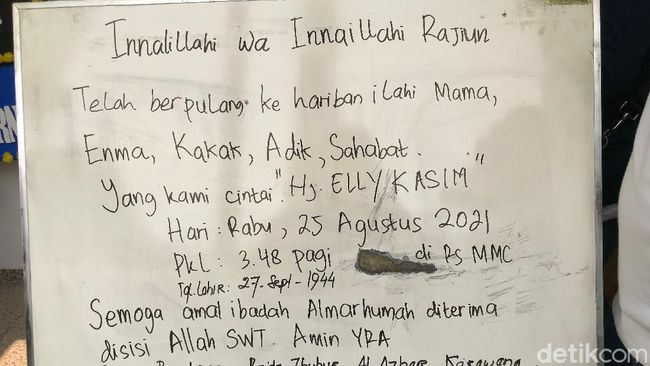 Innalillahi wa Innaillahi Rajiun
Telah berpulang ke hariban ilahi Mama,
Enma, Kakak, Adik, Sahabat.
Yang kami cintai "Hj. ELLY KASIM"
Hari : Rabu, 25 Agustus 2021
Pkl : 3.48 pagi di RS MMC
Tgl Lahir : 27-Sept-1944
Semoga amal ibadah Almarhumah diterima
disisi Allah SWT. Amin YRA
Al Azhar Karawang
detikcom